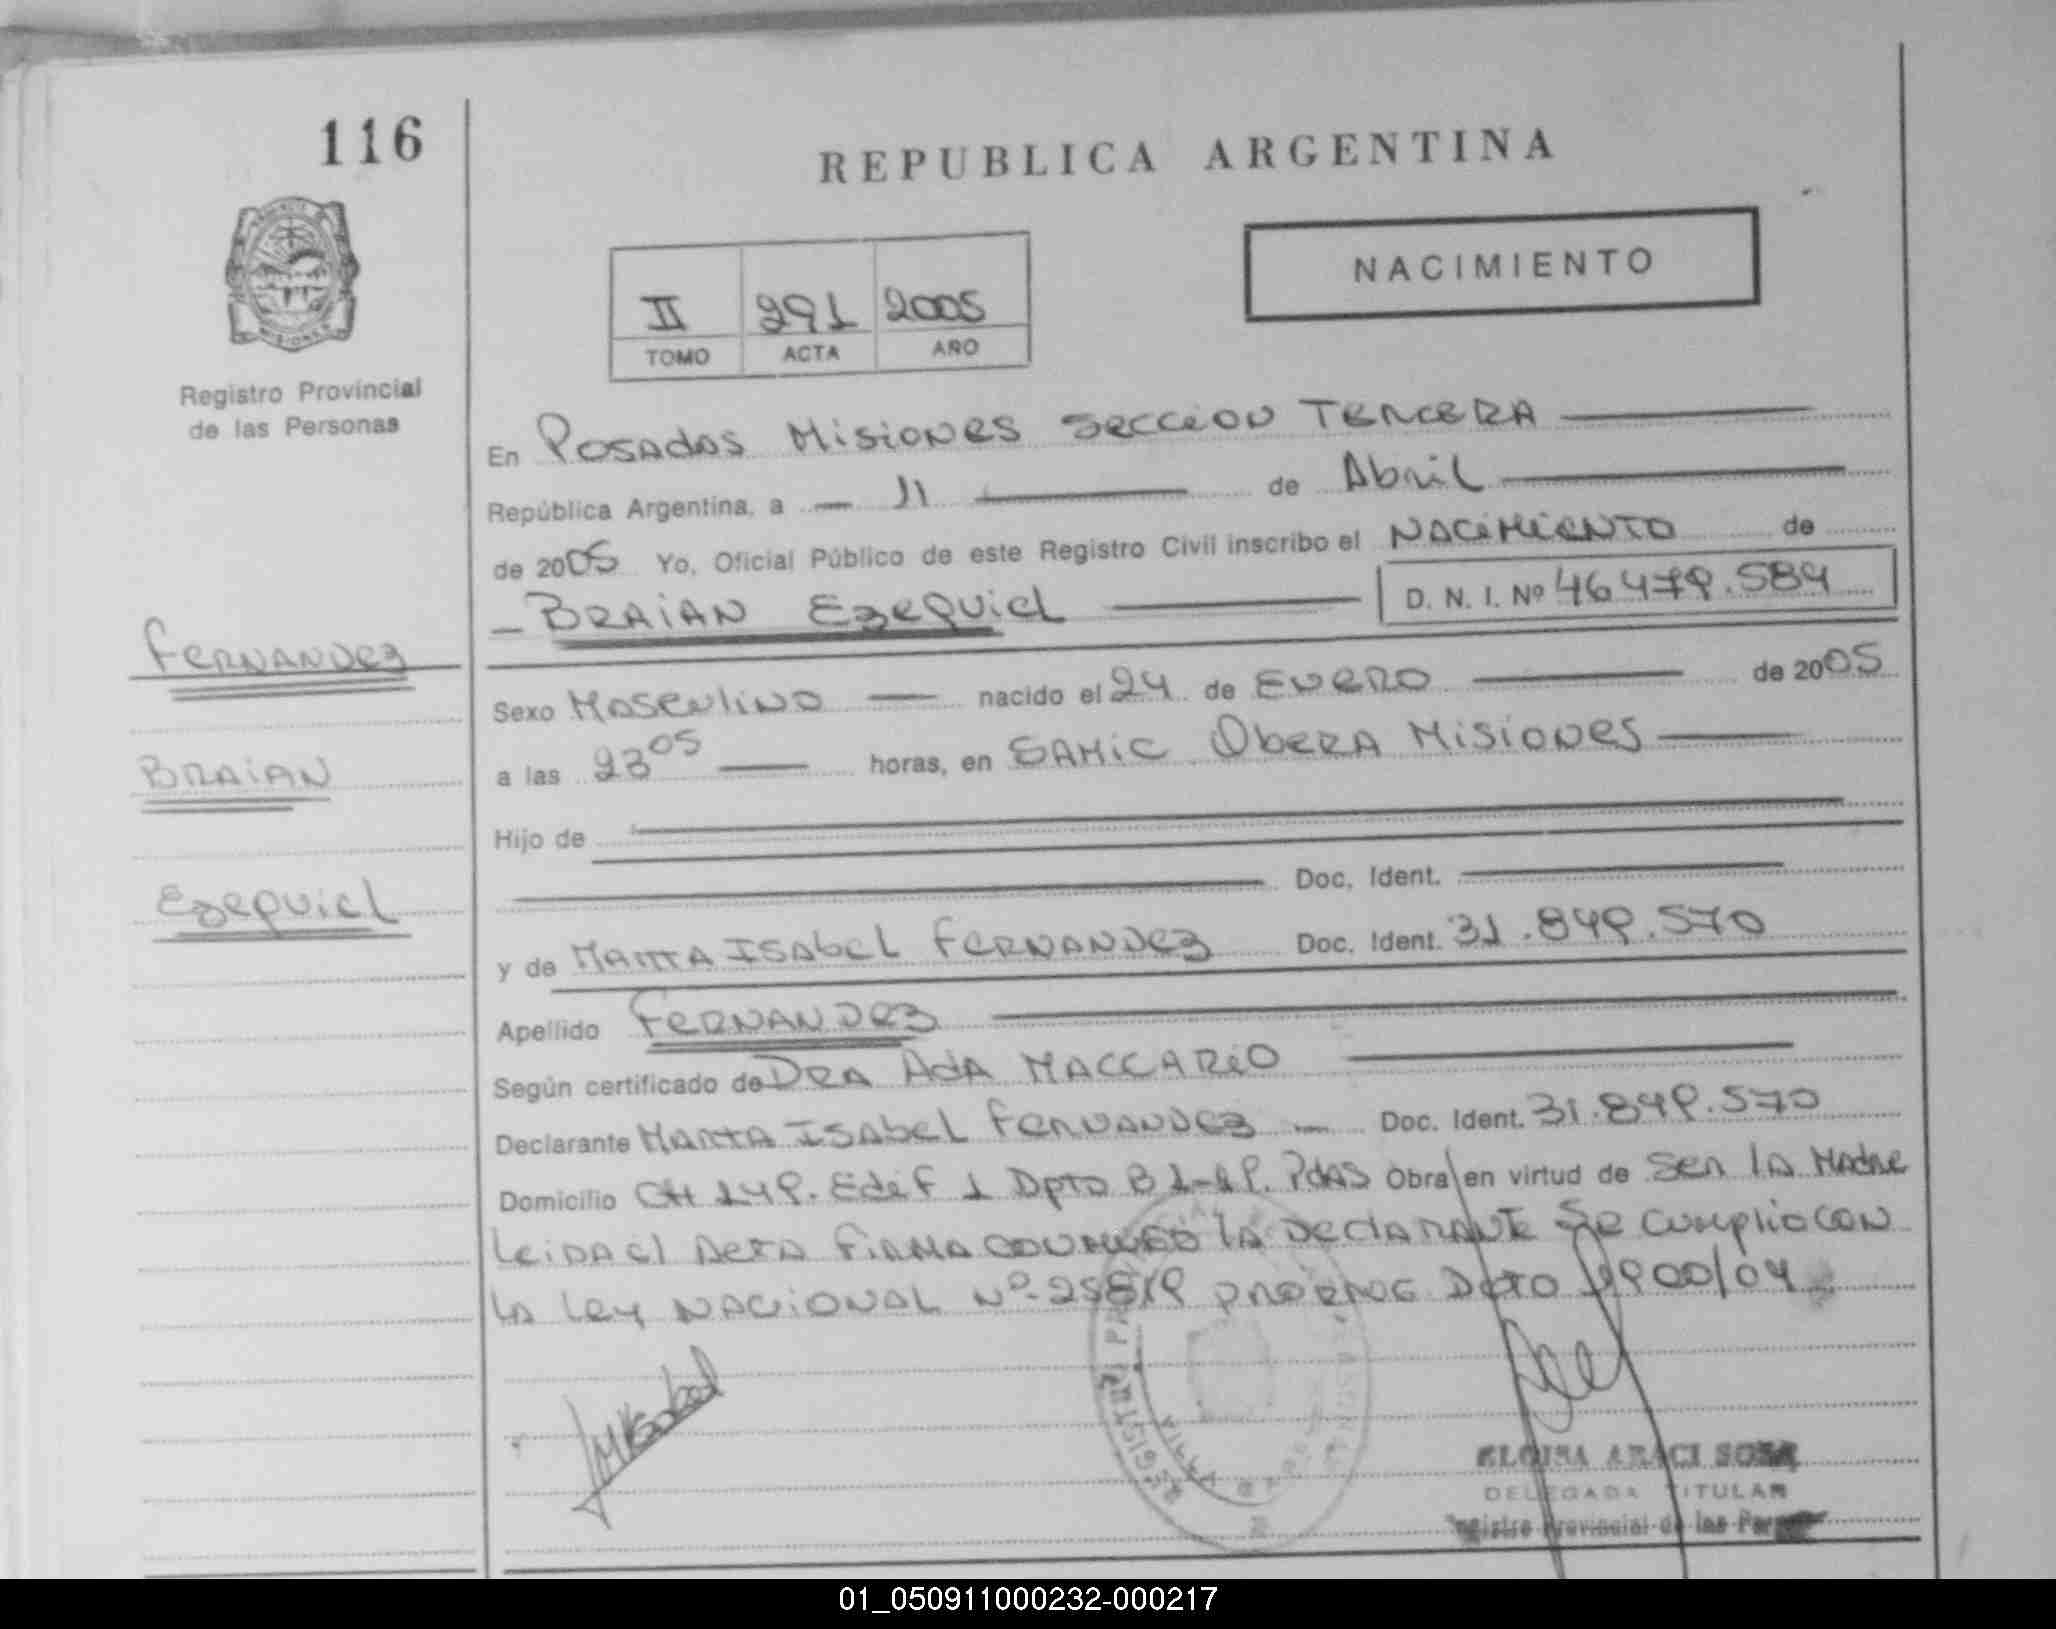 116
REPUBLICA ARGENTINA
NACIMIENTO
II 291 2005
TOMO ACTA AÑO
Registro Provincial
de las Personas
En Posadas Misiones Seccion Tercera
República Argentina, a 11 de Abril
de 2005 Yo, Oficial Público de este Registro Civil inscribo el Nacimiento de
Braian Ezequiel D. N. I. Nº 46 479.584
Fernandez
Sexo Masculino nacido el 24 de Enero de 2005
Braian
a las 23 05 horas, en SAMIC Obera Misiones
Hijo de
Doc. Ident.
Ezequiel
y de Marta Isabel Fernandez Doc. Ident. 31.849.570
Apellido Fernandez
Según certificado de Dra Ada Maccario
Declarante Marta Isabel Fernandez Doc. Ident. 31.849.570
Domicilio CH 149. Edif 1 Dpto B 1-1P. Pdas Obra en virtud de Ser la Madre
Leida el Acta Firma conmigo la declarante Se cumplio con
la Ley Nacional Nº 25819 Dcto 1900/04
ELOISA ARACI SOSA
DELEGADA TITULAR
Registro Provincial de las Per
01_050911000232-000217